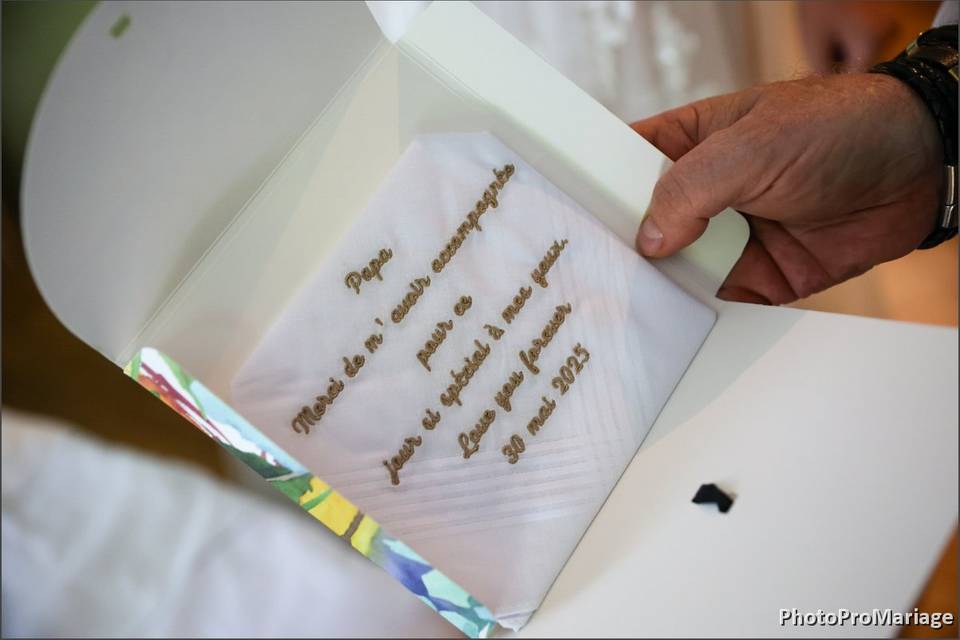 Papa
Merci de m'avoir accompagnée
pour ce
jour si spécial à mes yeux.
Love you forever
30 mai 2025
PhotoProMariage